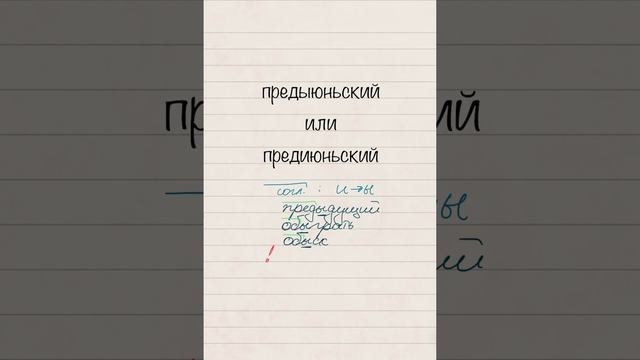 предыюньский
или
предиюньский
согл. : и→ы
предыдущий
обыграть
обыск
!